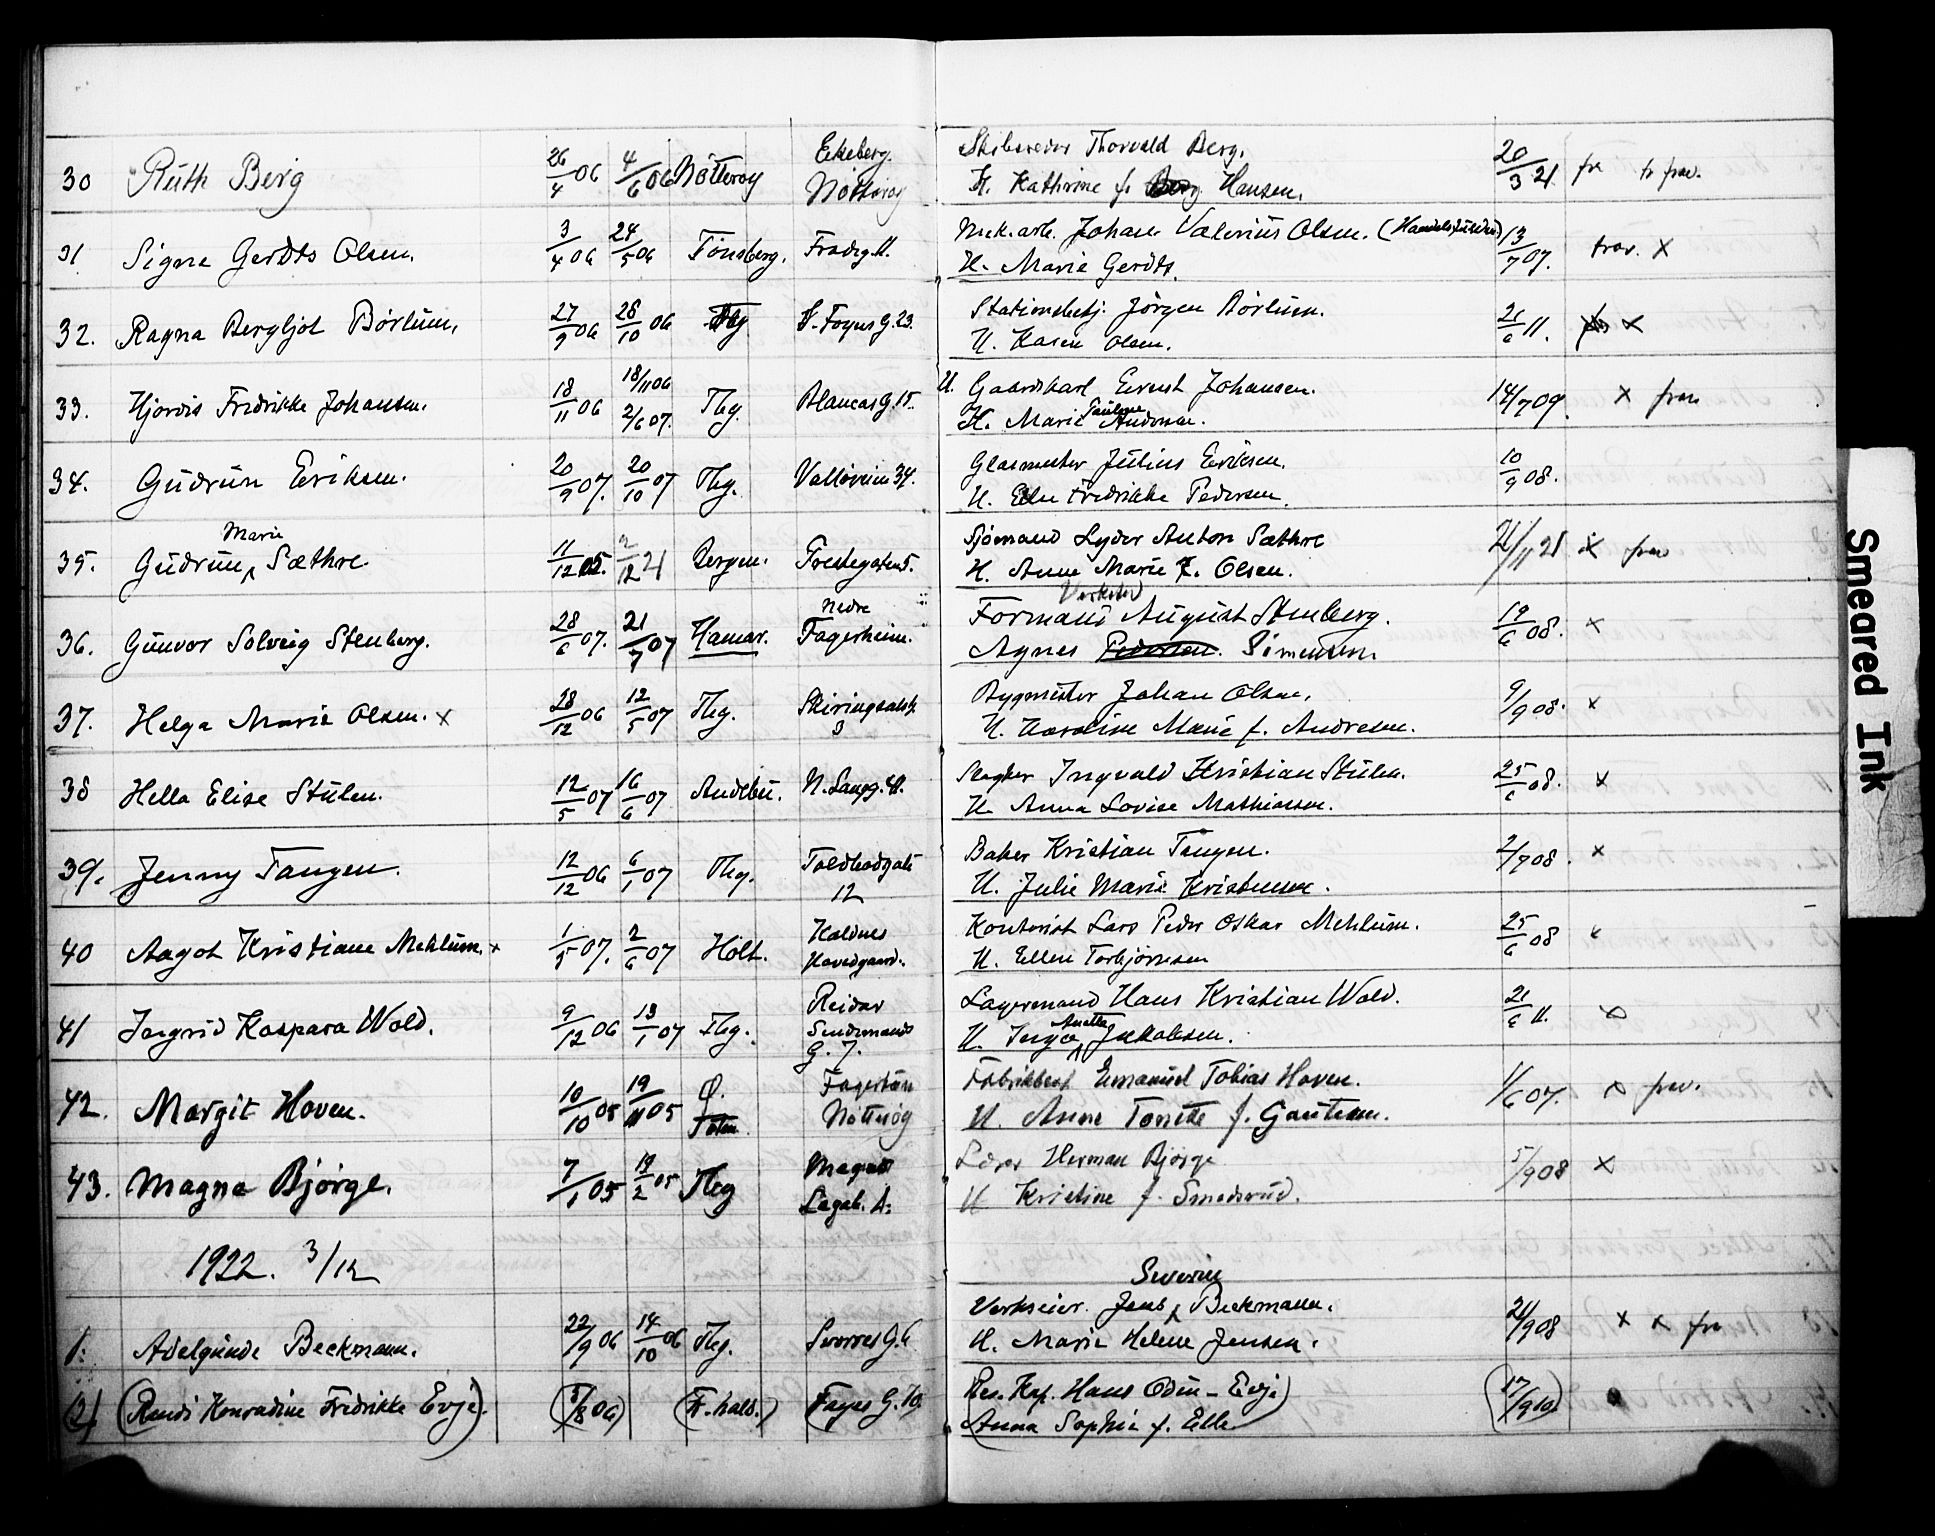 30 Ruth Berg 26/4 06 4/6 06 Nötteroy Ekeberg. Nötteröy Skibsreder Thorvald Berg. H. Kathrine f. Hansen. 20/3 21
31 Signe Gerdts Olsen. 3/4 06 24/5 06 Tönsberg. Mek.arb. Johan Valerius Olsen. H. Marie Gerdts. 13/7 07. x
32. Ragna Bergljot Börlum. 27/9 06 28/10 06 S. Foyns G. 23. Stationsbetj. Jörgen Börlum. H. Karen Olsen. 21/6 11. x
33. Hjordis Fredrikke Johansen. 18/11 06 18/11 06 2/6 07. Tbg. Gaardskarl Ernst Johansen. H. Marie Pauline Andersen. 14/7 09. x
34. Gudrun Eriksen. 20/9 07. 20/10 07 Tbg. Glasmester Julius Eriksen. H. Fredrikke Pedersen. 10/9 08.
35. Gudrun Marie Sæthre. 11/12 05. 2/12 21 Bergen. Sjömand Lyder Anton Sæthre H. Anne Marie f. Olsen. 21/11 21 x
36. Gunvor Solveig Stenberg. 28/6 07. 21/7 07 Hamar. Nedre Fagerheim. Formand August Stenberg. Agnes Simensen 19/6 08. x
37. Helga Marie Olsen. x 28/12 06 12/5 07 Tbg. Bygmester Johan Olsen. H. Karoline Marie f. Andresen. 9/9 08. x
38 Hella Elise Stulen. 12/5 07 16/6 07 Andebu. N. Langg. Ingvald Kristian Stulen. H. Anna Lovise Mathiassen. 25/6 08. x
39. Jenny Tangen. 12/12 06 6/1 07 Tbg. Toldbodgate 12 Baker Kristian Tangen. H. Julie Marie Kristensen. 2/7 08. x
40 Aagot Kristiane Mehlum. x 1/5 07. 2/6 07 Holt. Kaldnes Hovedgaard. Kontorist Lars Peder Oskar Mehlum. H. Ellen Torbjörnsen 25/6 08
41 Ingrid Kaspara Wold. 9/12 06 13/1 07 Tbg. Reidar Sendemands G. 7. Lagermand Hans Kristian Wold. H. Anette Jakobsen. 21/6 11. x
42. Margit Hoven. 10/10 05 19/11 05 Ø. Toten Fagertun Nötteröy Emanuel Tobias Hoven. H. Anne Tonette f. Gautesen. 1/6 07. x
43. Magna Bjørge. 7/1 05 19/2 05 Tbg Herman Bjørge H Kristine f. Smedsrud. 5/9 08 x
1922. 3/12
1. Adelgunde Beckmann. 22/9 06 14/10 06 Tbg. Snorres G. 6 Verkseier. Jens Severin Beckmann. H. Marie Helene Jensen. 21/9 08 x x
2) (Randi Konradine Fredrikke Evje). (5/8 06) (Foyns G. 10. Res. Kap. Hans Odin Evje) (Anna Sophie f. Elle (17/9 10)
Smeared Ink